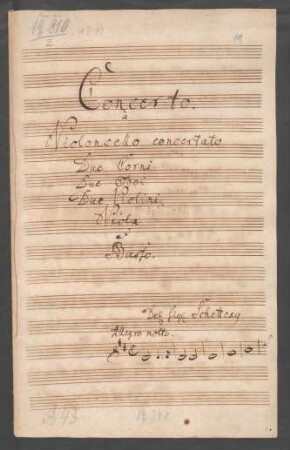 Concerto.
a
Violoncello concertato
Due Corni
Due Oboi
Due Violini
Viola
e
Basso.
Del Sigr Schetky
Allegro molto.